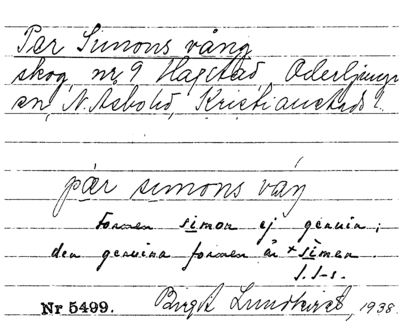 Per Simons vång
skog, nr 9 Hagstad, Oderljunga
sn, N. Åsbo hd, Kristianstads l.
pær simons váŋ
Formen simon ej genuin;
den genuina formen är *simen.
Birgit Lundkvist, 1938.
Nr 5499.